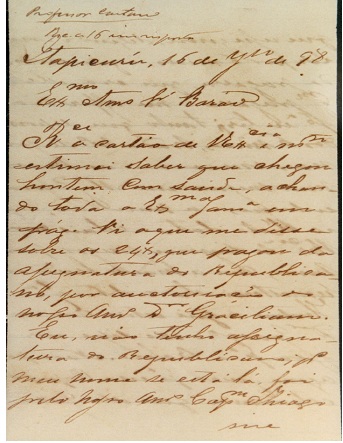 Professor Caetano
Itapicurú, 15 de 7bro de 98
Exmo Amo Sr Barão
o cartão de VExcia e mto
estimei saber que chegou
hontem com saude, achan
do toda a Exma Fama em
paz. Vi o que me disse
sobre os 24$, que pagou da
assignatura do Republica
no, por auctorisação do
nosso Amo Dr Graciliano.
Eu, não tenho assigna
tura do Republicano, se
meu nome se está lá, foi
pelo nosso Amo Capm Thiago